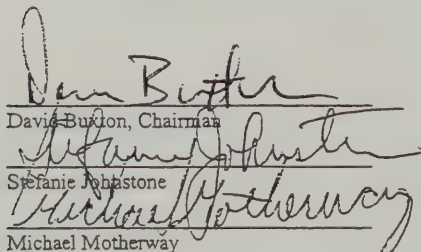 Dan Buxton
David Buxton, Chairman
Stefanie Johnstone
Stefanie Johnstone
Michael Motherway
Michael Motherway